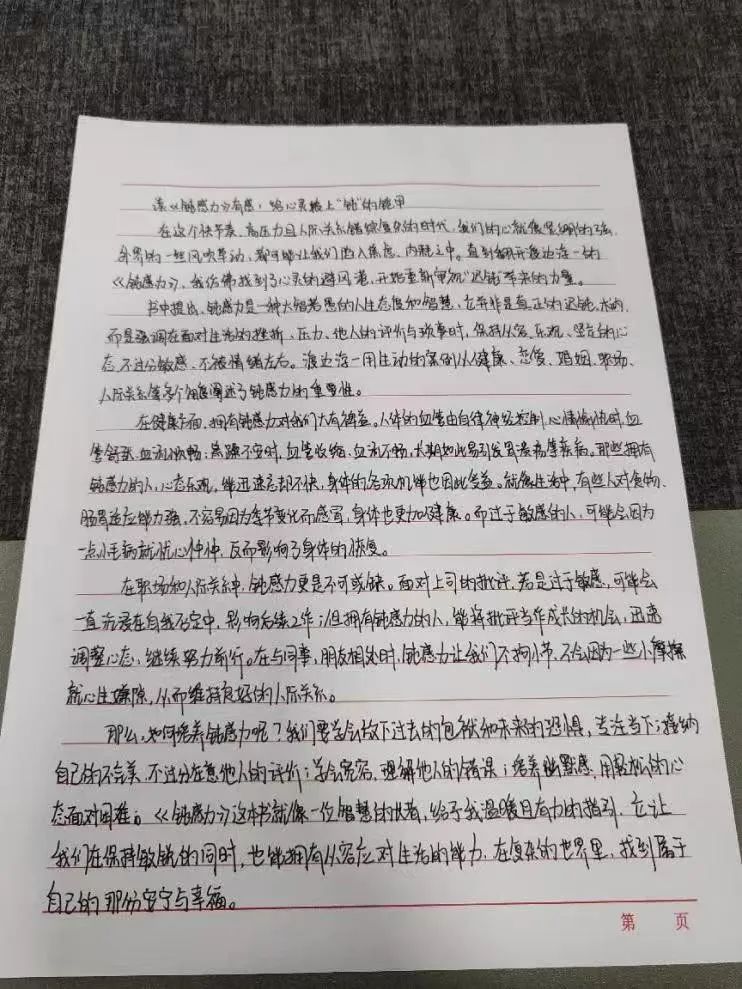 读《钝感力》有感：给心灵披上“钝”的铠甲
在这个快节奏、高压力且人际关系错综复杂的时代，我们的心就像紧绷的弦，
外界的一丝风吹草动，都可能让我们陷入焦虑、内耗之中。直到翻开渡边淳一的
《钝感力》，我仿佛找到了心灵的避风港，开始重新审视“迟钝”带来的力量。
书中提出，钝感力是一种大智若愚的人生态度和智慧，它并非是真正的迟钝、木讷，
而是强调在面对生活的挫折、压力、他人的评价与琐事时，保持从容、乐观、坚定的心
态，不过分敏感、不被情绪左右。渡边淳一用生动的案例从健康、恋爱、婚姻、职场、
人际关系等多个角度阐述了钝感力的重要性。
在健康方面，拥有钝感力对我们大有裨益。人体的血管由自律神经控制，心情愉悦时，血
管舒张，血流顺畅；焦躁不安时，血管收缩，血流不畅，长期如此易引发胃溃疡等疾病。那些拥有
钝感力的人，心态乐观，能迅速忘却不快，身体的各项机能也因此受益。就像生活中，有些人对食物、
肠胃适应能力强，不容易因为季节变化而感冒，身体也更加健康。而过于敏感的人，可能会因为
一点小毛病就忧心忡忡，反而影响了身体的恢复。
在职场和人际关系中，钝感力更是不可或缺。面对上司的批评，若是过于敏感，可能会
一直沉浸在自我否定中，影响后续工作；但拥有钝感力的人，能将批评当作成长的机会，迅速
调整心态，继续努力前行。在与同事，朋友相处时，钝感力让我们不拘小节，不会因为一些小摩擦
就心生嫌隙，从而维持良好的人际关系。
那么，如何培养钝感力呢？我们要学会放下过去的包袱和未来的恐惧，专注当下；接纳
自己的不完美，不过分在意他人的评价；学会宽容，理解他人的错误；培养幽默感，用轻松的心
态面对困难。《钝感力》这本书就像一位智慧的长者，给予我温暖且有力的指引，它让
我们在保持敏锐的同时，也能拥有从容应对生活的能力，在复杂的世界里，找到属于
自己的那份安宁与幸福。
第 页